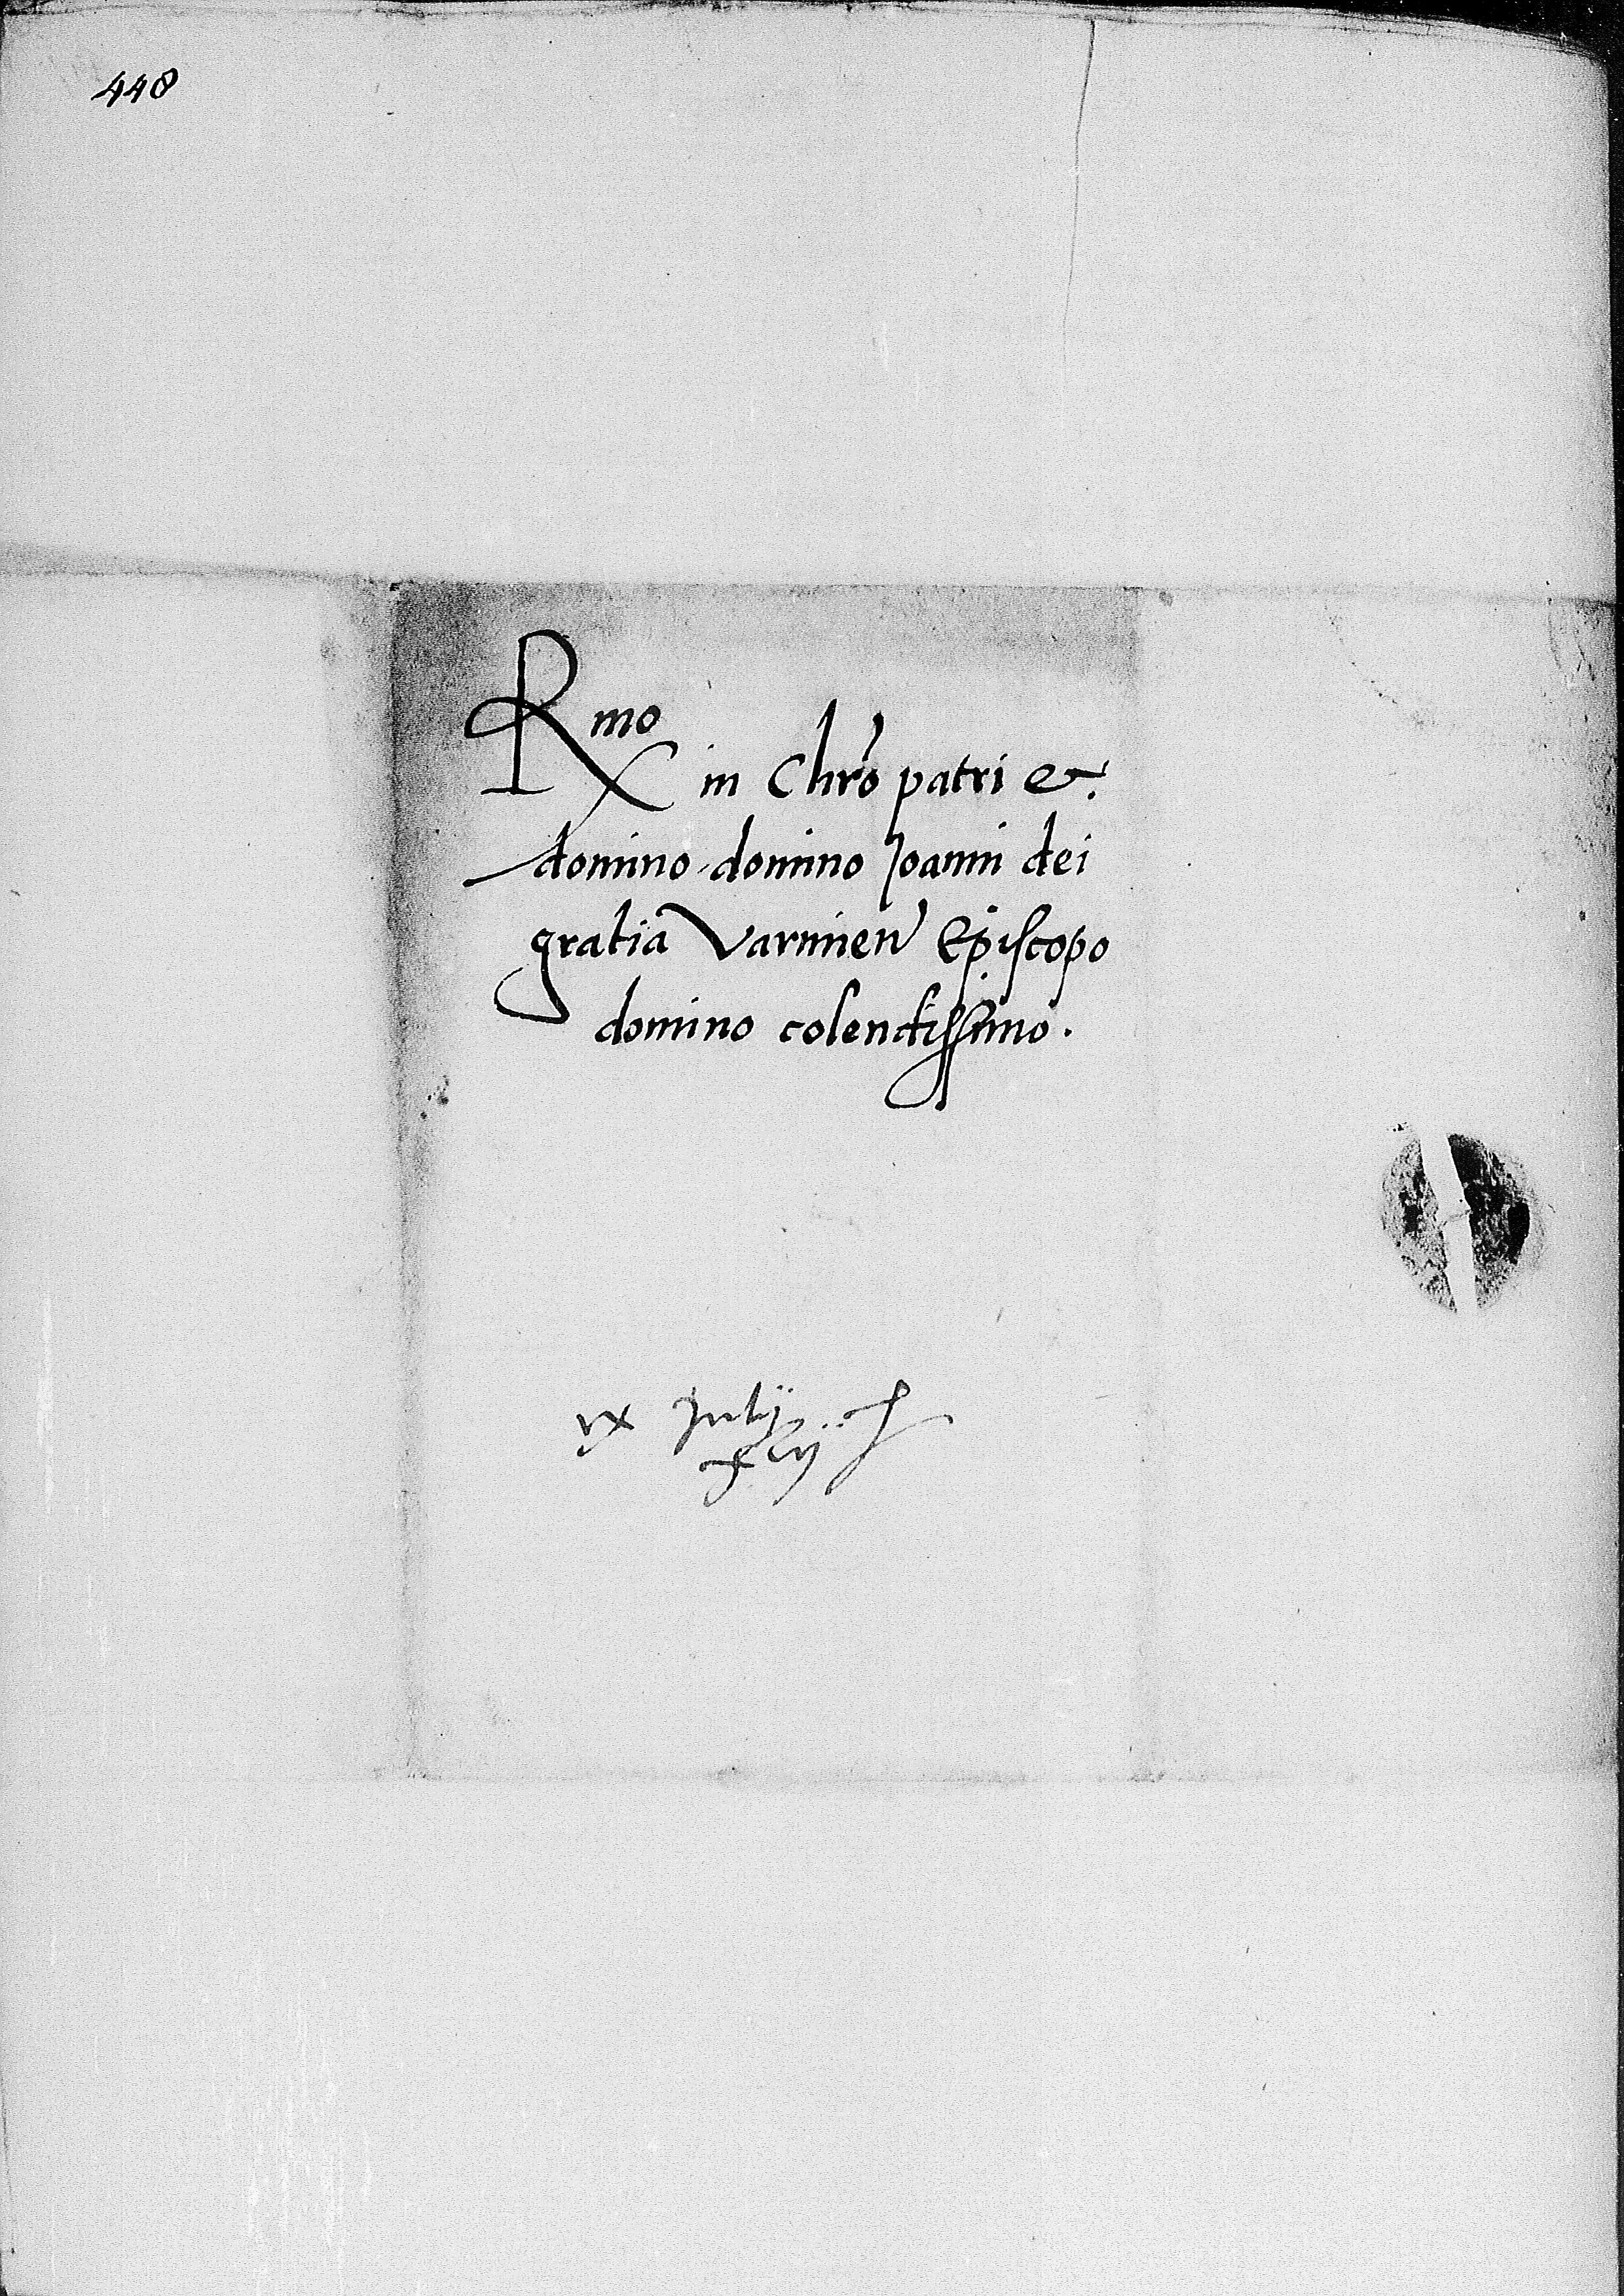 448
Rmo
in Chr̃o patri &.
domino domino Joanni dei
gratia Varmieñ Episcopo
domino colendissimo.
ix Julij
xlij